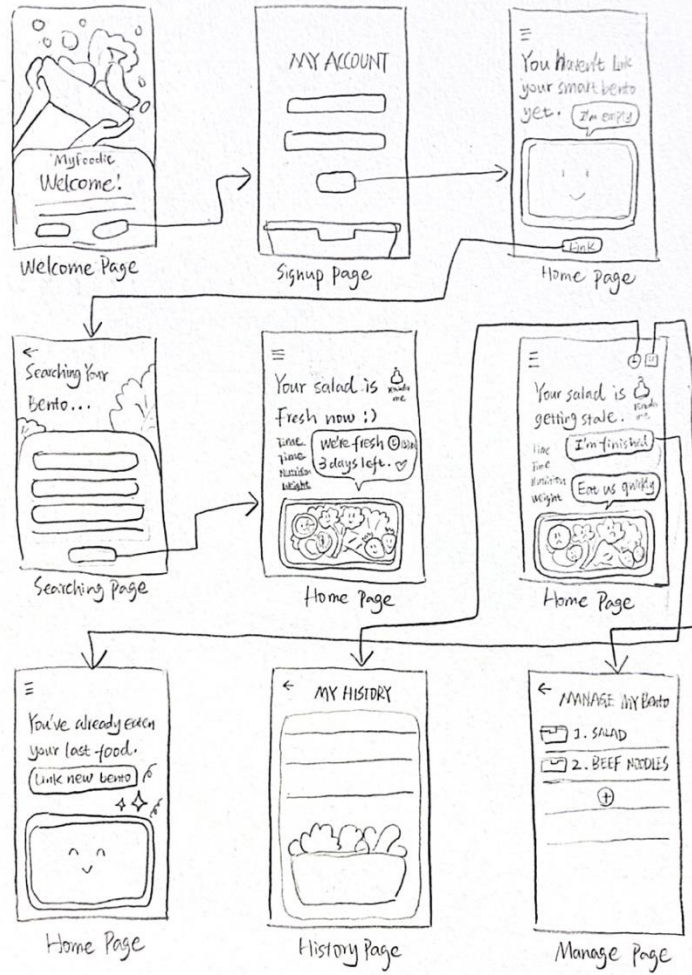 MyFoodie
Welcome!
Welcome Page
MY ACCOUNT
Signup Page
You Haven't link
your smart bento
yet.
I'm empty
Link
Home Page
Searching Your
Bento...
Searching Page
Your salad is
Fresh now :)
Time
Time
Nutrition
Weight
We're fresh
3 days left.
Home Page
Your salad is
getting stale.
Time
Time
Nutrition
Weight
I'm finished
Eat us quickly
Home Page
You've already eaten
your last food.
Link new bento
Home Page
MY HISTORY
History Page
MANAGE MY Bento
1. SALAD
2. BEEF NOODLES
Manage Page